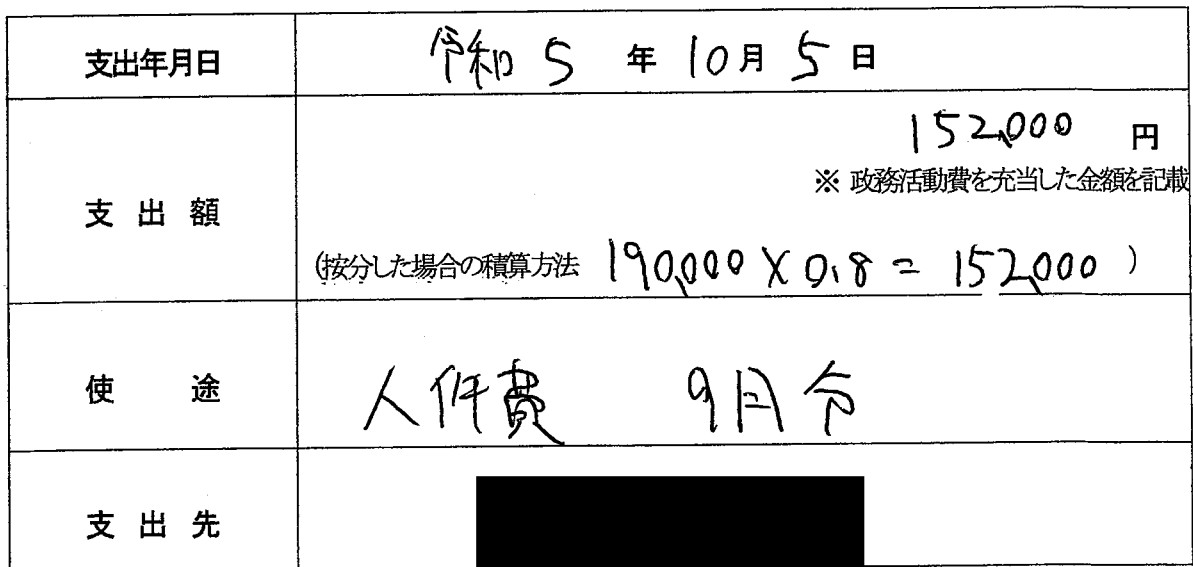 支出年月日 令和 5 年 10月 5 日
152,000 円
※ 政務活動費を充当した金額を記載
支出額
(按分した場合の積算方法 190,000 × 0.8 = 152,000 )
使途 人件費 9月分
支出先